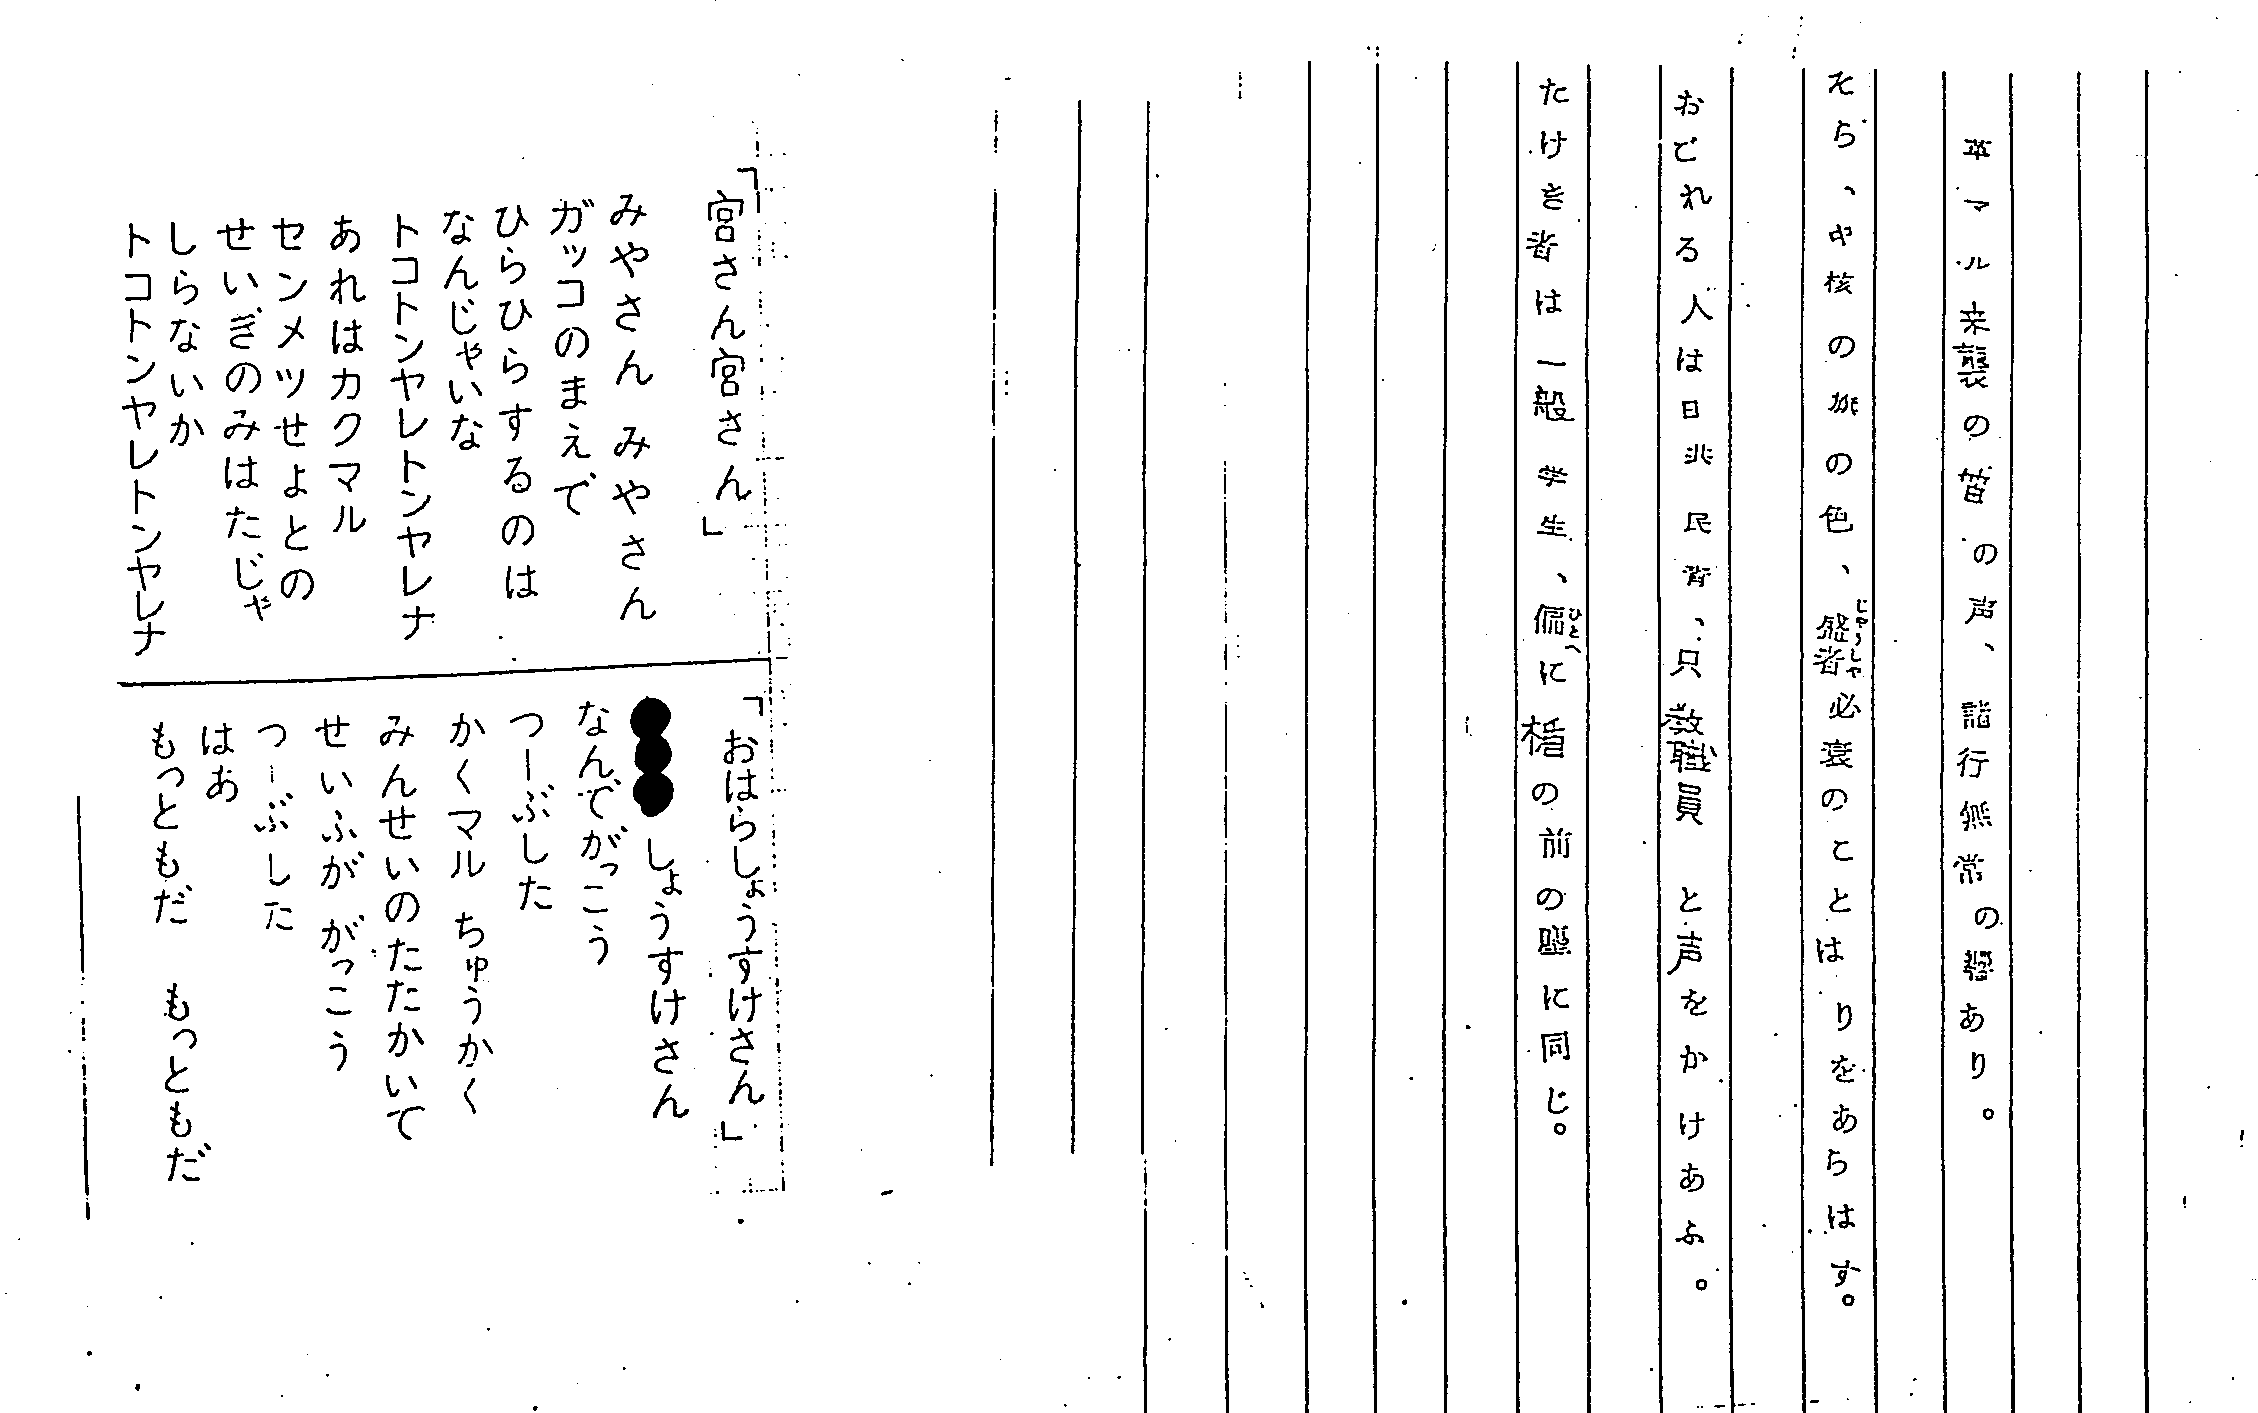 革マル来襲の笛の声、諸行無常の響あり。
そら、中核の旗の色、盛者必衰のことはりをあらはす。
じゃうしゃ
おごれる人は日共民青、只教職員 と声をかけあふ。
たけき者は一般学生、偏に楯の前の塵に同じ。
ひとへ
「宮さん宮さん」
みやさん みやさん
ガッコのまえで
ひらひらするのは
なんじゃいな
トコトンヤレトンヤレナ
あれはカクマル
センメツせよとの
せいぎのみはたじゃ
しらないか
トコトンヤレトンヤレナ
「おはらしょうすけさん」
しょうすけさん
なんでがっこう
つーぶした
かくマル ちゅうかく
みんせいのたたかいで
せいふが がっこう
つーぶした
はあ
もっともだ もっともだ